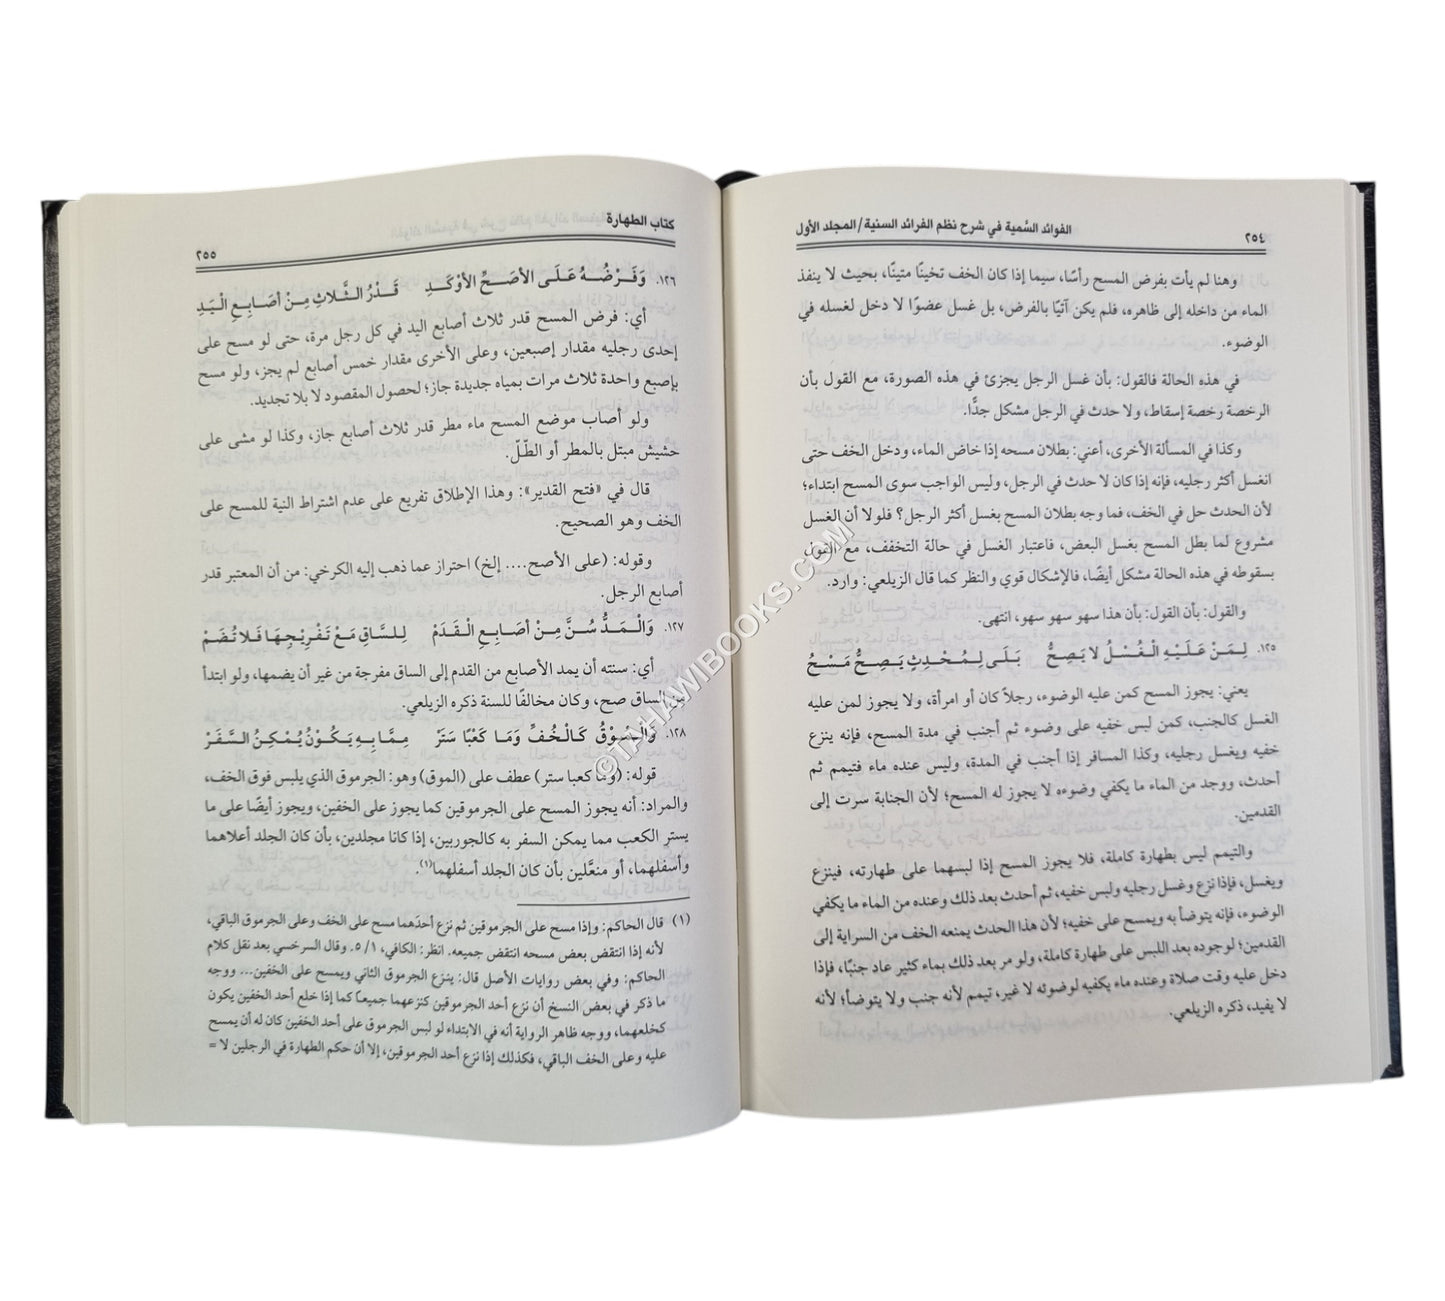 ٢٥٤
الفوائد السَّمية في شرح نظم الفرائد السنية/ المجلد الأول
وهنا لم يأت بفرض المسح رأسًا، سيما إذا كان الخف تخينًا متينًا، بحيث لا ينفذ
الماء من داخله إلى ظاهره، فلم يكن آتيًا بالفرض، بل غسل عضوًا لا دخل لغسله في
الوضوء.
في هذه الحالة فالقول: بأن غسل الرجل يجزئ في هذه الصورة، مع القول بأن
الرخصة رخصة إسقاط، ولا حدث في الرجل مشكل جدًّا.
وكذا في المسألة الأخرى، أعني: بطلان مسحه إذا خاض الماء، ودخل الخف حتى
انغسل أكثر رجليه، فإنه إذا كان لا حدث في الرجل، وليس الواجب سوى المسح ابتداء؛
لأن الحدث حل في الخف، فما وجه بطلان المسح بغسل أكثر الرجل؟ فلولا أن الغسل
مشروع لما بطل المسح بغسل البعض، فاعتبار الغسل في حالة التخفف، مع القول
بسقوطه في هذه الحالة مشكل أيضًا، فالإشكال قوي والنظر كما قال الزيلعي: وارد.
والقول: بأن القول: بأن هذا سهو سهو سهو، انتهى.
١٢٥. لِمَنْ عَلَيْهِ الْغُسْلُ لا يَصِحُّ بَلَى لِمُحْدِثٍ يَصِحُّ مَسْحُ
يعني: يجوز المسح كمن عليه الوضوء، رجلاً كان أو امرأة، ولا يجوز لمن عليه
الغسل كالجنب، كمن لبس خفيه على وضوء ثم أجنب في مدة المسح، فإنه ينزع
خفيه ويغسل رجليه، وكذا المسافر إذا أجنب في المدة، وليس عنده ماء فتيمم ثم
أحدث، ووجد من الماء ما يكفي وضوءه لا يجوز له المسح؛ لأن الجنابة سرت إلى
القدمين.
والتيمم ليس بطهارة كاملة، فلا يجوز المسح إذا لبسهما على طهارته، فينزع
ويغسل، فإذا نزع وغسل رجليه ولبس خفيه، ثم أحدث بعد ذلك وعنده من الماء ما يكفي
الوضوء، فإنه يتوضأ به ويمسح على خفيه؛ لأن هذا الحدث يمنعه الخف من السراية إلى
القدمين؛ لوجوده بعد اللبس على طهارة كاملة، ولو مر بعد ذلك بماء كثير عاد جنبًا، فإذا
دخل عليه وقت صلاة وعنده ماء يكفيه لوضوئه لا غير، تيمم لأنه جنب ولا يتوضأ؛ لأنه
لا يفيد، ذكره الزيلعي.
كتاب الطهارة
٢٥٥
١٢٦. وَفَرْضُهُ عَلَى الأصَحِّ الأوْكَدِ قَدْرُ الثَّلاثِ مِنْ أصَابِعِ الْيَدِ
أي: فرض المسح قدر ثلاث أصابع اليد في كل رجل مرة، حتى لو مسح على
إحدى رجليه مقدار إصبعين، وعلى الأخرى مقدار خمس أصابع لم يجز، ولو مسح
بإصبع واحدة ثلاث مرات بمياه جديدة جاز؛ لحصول المقصود لا بلا تجديد.
ولو أصاب موضع المسح ماء مطر قدر ثلاث أصابع جاز، وكذا لو مشى على
حشيش مبتل بالمطر أو الطّلّ.
قال في «فتح القدير»: وهذا الإطلاق تفريع على عدم اشتراط النية للمسح على
الخف وهو الصحيح.
وقوله: (على الأصح.... إلخ) احتراز عما ذهب إليه الكرخي: من أن المعتبر قدر
أصابع الرجل.
١٢٧. وَالْمَدُّ سُنَّ مِنْ أصَابِعِ الْقَدَمْ لِلسَّاقِ مَعْ تَفْرِيجِهَا فَلا تُضَمْ
أي: سنته أن يمد الأصابع من القدم إلى الساق مفرجة من غير أن يضمها، ولو ابتدأ
من الساق صح، وكان مخالفًا للسنة ذكره الزيلعي.
١٢٨. وَالْمُوْقُ كَالْخُفِّ وَمَا كَعْبًا سَتَرْ مِمَّا بِهِ يَكُوْنُ يُمْكِنُ السَّفَرْ
قوله: (وما كعبا ستر) عطف على (الموق) وهو: الجرموق الذي يلبس فوق الخف،
والمراد: أنه يجوز المسح على الجرموقين كما يجوز على الخفين، ويجوز أيضًا على ما
يستر الكعب مما يمكن السفر به كالجوربين، إذا كانا مجلدين، بأن كان الجلد أعلاهما
وأسفلهما، أو منعَّلين بأن كان الجلد أسفلهما(١).
(١) قال الحاكم: وإذا مسح على الجرموقين ثم نزع أحدَهما مسح على الخف وعلى الجرموق الباقي،
لأنه إذا انتقض بعض مسحه انتقض جميعه. انظر: الكافي، ١/ ٥. وقال السرخسي بعد نقل كلام
الحاكم: وفي بعض روايات الأصل قال: ينزع الجرموق الثاني ويمسح على الخفين... ووجه
ما ذكر في بعض النسخ أن نزع أحد الجرموقين كنزعهما جميعاً كما إذا خلع أحد الخفين يكون
كخلعهما، ووجه ظاهر الرواية أنه في الابتداء لو لبس الجرموق على أحد الخفين كان له أن يمسح
عليه وعلى الخف الباقي، فكذلك إذا نزع أحد الجرموقين، إلا أن حكم الطهارة في الرجلين لا =
©TAHAWIBOOKS.COM